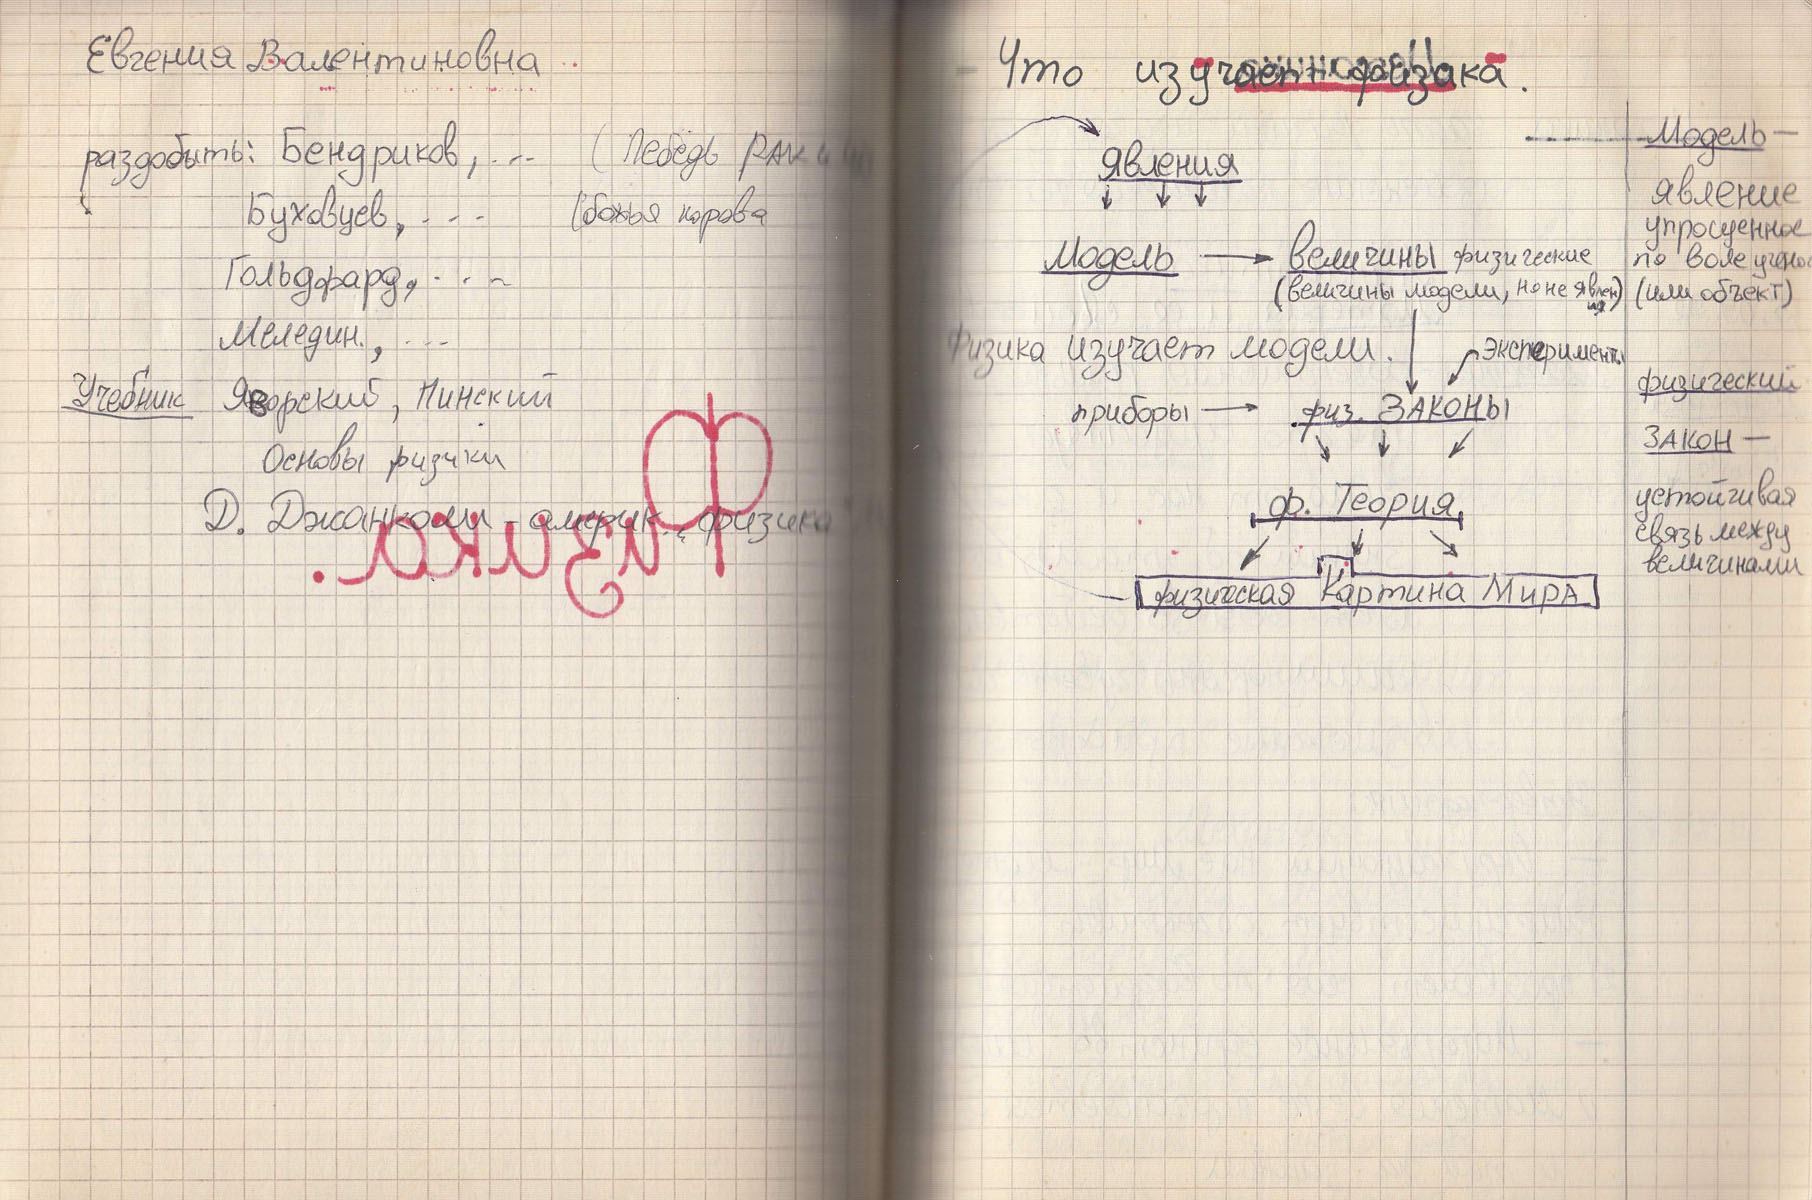 Евгения Валентиновна
раздобыть: Бендриков, ... (Лебедь Рак и
Буховцев, ... (божья корова
Гольдфард, ...
Меледин., ...
Учебник Яворский, Пинский
Основы физики
Д. Джанколи - америк. физика
Физика.
Что изучает физика.
Явления
Модель → величины физические
(величины модели, но не явления)
Физика изучает модели.
Эксперимент.
приборы → физ. ЗАКОНЫ
ф. Теория
физическая Картина Мира
Модель —
явление
упрощенное
по воле учено
(или объект)
физический
ЗАКОН —
устойчивая
связь между
величинами